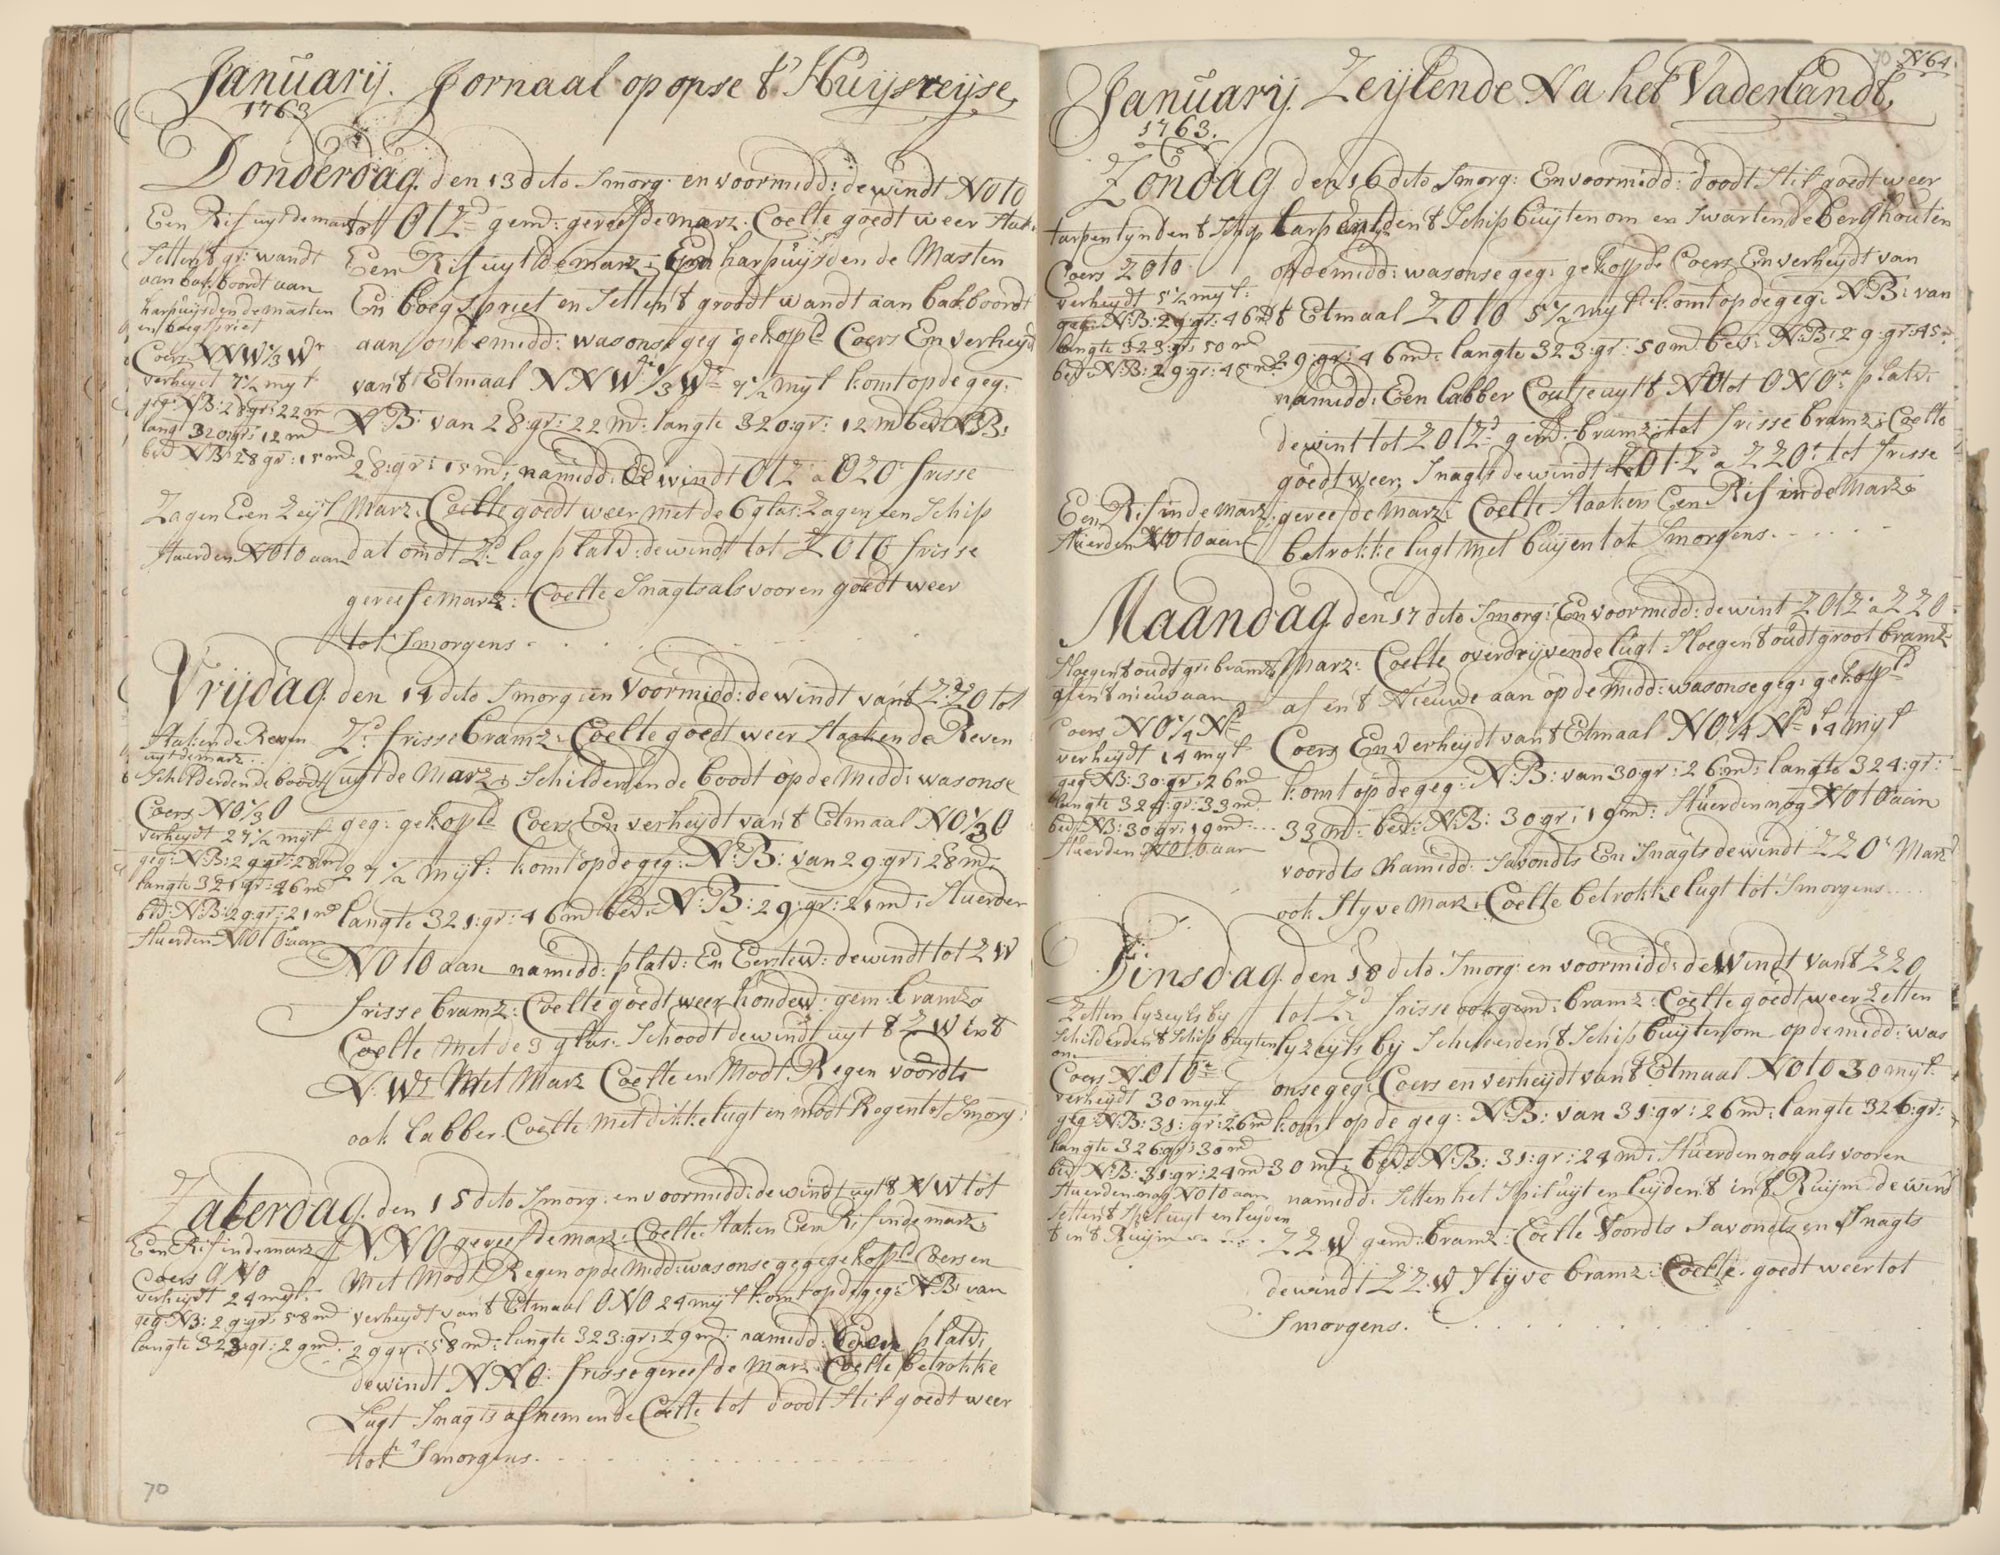 Januarij. Jornaal op onse t' Huijsreijse,
1763
Donderdag. den 13 dito Smorg: en voormidd: de windt NOtO
Een Rif uyt de marz tot OtZ gemd: gereefde marz: Coelte goedt weer Stak:
Setten t gr: wandt Een Rif uyt de marz: En harpuijsden de Masten
aan bakboordt aan En boegspriet en Setten t groodt wandt aan bakboordt
harpuijsden de masten
en boegspriet aan op de midd: was onse geg gekopld Coers En verheyd
Coers NNW 1/3 Wr van t Etmaal NNW 1/3 Wr 7 1/2 myl komt op de geg:
verheydt 7 1/2 myl
geg: NB: 28 gr: 22 m NB: van 28: gr: 22 md: langte 320: gr: 12 md bed NB:
langt 320: gr: 12 md
bed NB: 28 gr: 15 md 28: gr: 15 md: namidd: de windt OtZ a OZO frisse
Zagen Een Zeyl Marz: Coelte goedt weer met de 6 glas: Zagen een Schip
Stuerden NOtO aan dat om dt Z: lag platv: de windt tot ZOtO frisse
gereefe marz: Coelte Snagts als vooren goedt weer
tot Smorgens
Vrijdag. den 14 dito Smorg: en Voormidd: de windt van t ZZO tot
Staken de Reven Zd: frisse bramz: Coelte goedt weer Staeken de Reven
uyt de marz:
Schilderden de boodt uyt de Marz: Schilderden de boodt op de Midd: was onse
Coers NO 1/3 O geg: gekopld Coers En verheydt van t Etmaal NO 1/3 O
verheydt 27 1/2 myl
geg: NB: 29: gr: 28 md 27 1/2 myl: komt op de geg: NB: van 29: gr: 28 md:
langte 321: gr: 46 md
bed: NB: 29: gr: 21 md langte 321: gr: 46 md bed: NB: 29: gr: 21 md: Stuerden
Stuerden NOtO aan NOtO aan namidd: platv: En Eerstew: de windt tot ZW
frisse bramz: Coelte goedt weer hondew: gem: bramz
Coelte met de 3 glas: Schoodt de windt uyt t ZW in t
N: Wt Met Marz Coelte en Modt Regen voordts
ook labber Coelte met dikke lugt en modt Regen tot Smorg:
Zaterdag. den 15 dito Smorg: en voormidd: de windt uyt t NW tot
Een Rif in de marz NNO gereefde marz: Coelte Staken Een Rif in de marz:
Coers ONO Met Modt Regen op de Midd: was onse geg gekopld Coers en
verheydt 24 myl: verheydt van t Etmaal ONO 24 myl komt op de geg: NB: van
geg: NB: 29: gr: 58 md
langte 323: gr: 29 md: 29 gr: 58 md: langte 323: gr: 29 md: namidd: Een platv:
de windt NNO: frisse gereefde marz: Coelte betrokke
Lugt Snagts afnemende Coelte tot doodt Stil goedt weer
tot Smorgens.
70
70 N64
Januarij. Zeijlende Na het Vaderlandt,
1763.
Zondag. den 16 dito Smorg: En voormidd: doodt Stil goedt weer
tarpentynden t Schip tarpentynden t Schip buijten om en Swarten de berghouten
Coers ZOtO op de midd: was onse geg: gekoppde Coers En verheydt van
verheydt 5 1/2 myl:
geg: NB: 29: gr: 46 md t Etmaal ZOtO 5 1/2 myl: komt op de geg: NB: van
langte 323: gr: 50 md
bed: NB: 29: gr: 45 md 29: gr: 46 md: langte 323: gr: 50 md bed: NB: 29: gr: 45 m
namidd: Een labber Coelte uyt t NO tot ONO: platv:
de wint tot ZOtZ: gemd: bramz: tot frisse bramz: Coelte
goedt weer: Snagts de windt OtZ a ZZO: tot frisse
Een Rif in de marz: gereefde Marz: Coelte Staaken Een Rif in de Marz
Stuerden NOtO aan betrokke lugt Met buijen tot Smorgens.
Maandag den 17 dito Smorg: En voormidd: de wint ZOtZ a ZZO
Sloegen t oudt gr: bramz: Marz: Coelte overdrijvende lugt Sloegen t oudt groot bramz
af en t nieuw aan af en t Nieuwe aan op de Midd: was onse geg: gekoppld
Coers NO 1/4 N Coers En verheydt van t Etmaal NO 1/4 N 14 myl
verheydt 14 myl
geg NB: 30: gr: 26 md komt op de geg: NB: van 30: gr: 26: md: langte 324: gr:
langte 324: gr: 33 md
bed: NB: 30: gr: 19 md: 33 md: bed: NB: 30: gr: 19 md: Stuerden nog NOtO aan
Stuerden NOtO aan voordts Namidd: Savondts En Snagts de windt ZZO Marz
ook Styve Marz: Coelte betrokke lugt tot Smorgens
Dinsdag. den 18 dito Smorg: en voormidd: de Windt van t ZZO
Zetten lyzeyls by tot Zd frisse ook gemd: bramz: Coelte goedt weer Zetten
Schilderden t Schip buyten om lyzeyls by Schilderden t Schip buijten om op de midd: was
Coers NOtO onse geg: Coers en verheydt van t Etmaal NOtO 30 myl:
verheydt 30 myl
geg: NB: 31: gr: 26 md komt op de geg: NB: van 31: gr: 26 md: langte 326: gr:
langte 326: gr: 30 md
bed NB: 31: gr: 24 md 30 mt: bed: NB: 31: gr: 24 md: Stuerden nog als vooren
Stuerden nog NOtO aan namidd: Setten het Spil uyt en leyden t in t Ruijm de wind
Setten t Spel uyt en leyden
t in t Ruijm ZZW gemd: bramz: Coelte Voordts Savondts en Snagts
de windt ZZW Styve bramz: Coelte. goedt weer tot
Smorgens.